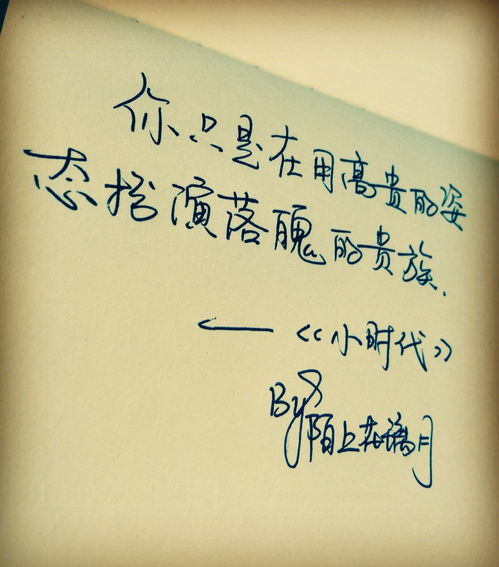 你只是在用高贵的姿
态扮演落魄的贵族.
——《小时代》
By 陌上花璃月